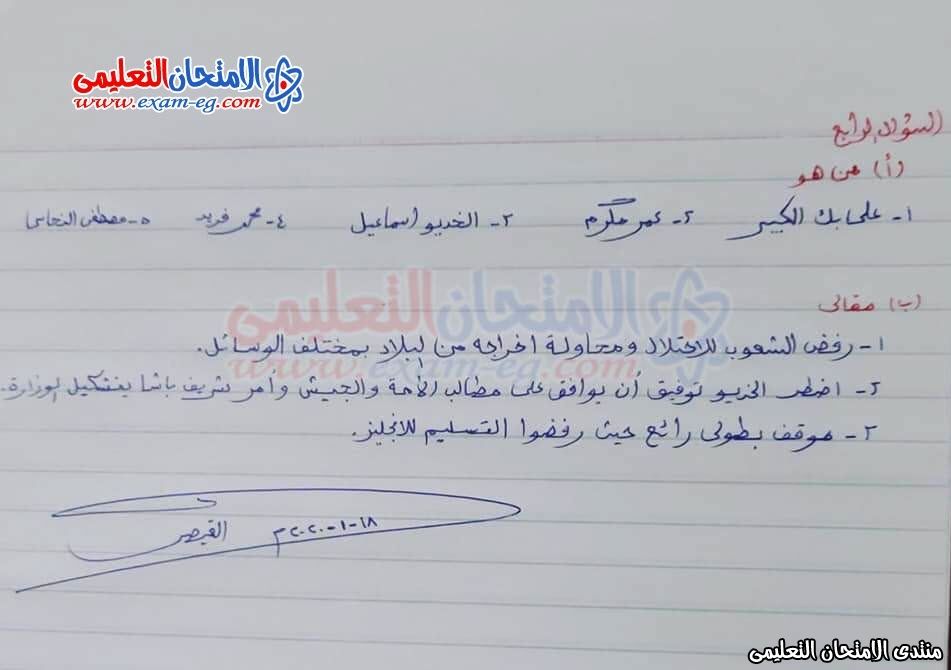 الامتحان التعليمى
www.exam-eg.com
السؤال الرابع
(أ) من هو
١- على بك الكبير ٢- عمر مكرم ٣- الخديو اسماعيل ٤- محمد فريد ٥- مصطفى النحاس
(ب) مقالى
الامتحان التعليمى
١- رفض الشعوب للاحتلال ومحاولة اخراجه من البلاد بمختلف الوسائل.
www.exam-eg.com
٢- اضطر الخديو توفيق أن يوافق على مطالب الأمة والجيش وأمر شريف باشا بتشكيل الوزارة.
٣- موقف بطولى رائع حيث رفضوا التسليم للانجليز.
١٨-١-٢٠٢٠م
منتدى الامتحان التعليمى